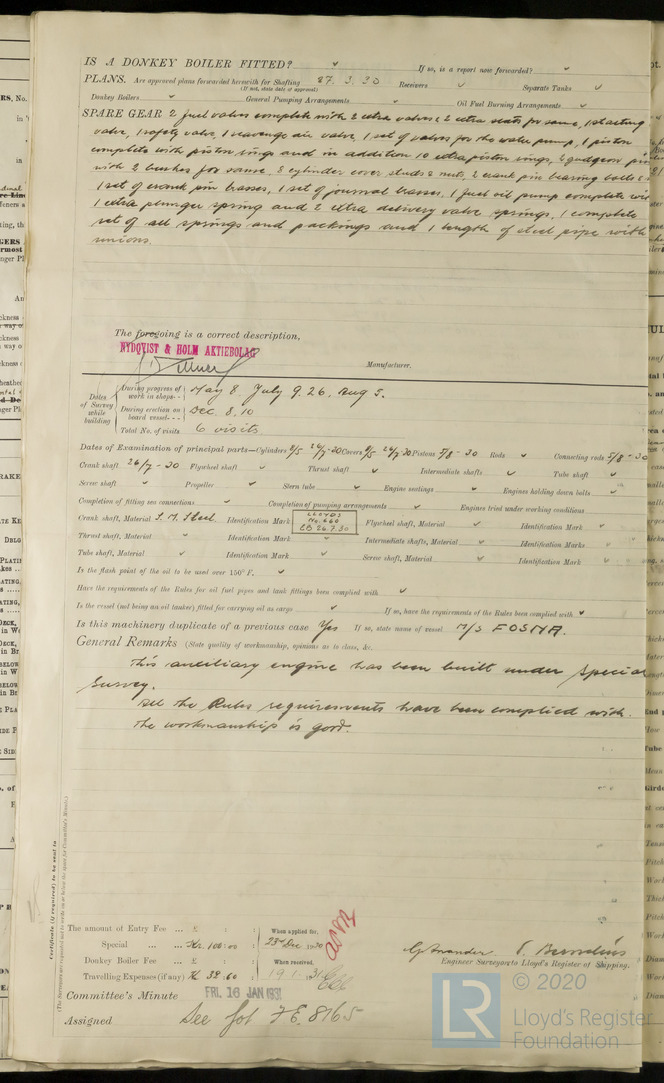 IS A DONKEY BOILER FITTED? ✓ If so, is a report now forwarded? ✓
PLANS. Are approved plans forwarded herewith for Shafting 27.3.30 Receivers ✓ Separate Tanks ✓
(If not, state date of approval)
Donkey Boilers ✓ General Pumping Arrangements ✓ Oil Fuel Burning Arrangements ✓
SPARE GEAR 2 fuel valves complete with 2 extra valves & 2 extra seats for same, 1 starting
valve, 1 safety valve, 1 scavenge air valve, 1 set of valves for the water pump, 1 piston
complete with piston rings and in addition 10 extra piston rings, 2 gudgeon pin
with 2 bushes for same, 8 cylinder cover studs & nuts, 2 crank pin bearing bolts &
1 set of crank pin brasses, 1 set of journal brasses, 1 fuel oil pump complete wi
1 extra plunger spring and 2 extra delivery valve springs, 1 complete
set of all springs and packings and 1 length of steel pipe with
unions.
The foregoing is a correct description,
NYDQVIST & HOLM AKTIEBOLAG
Manufacturer.
Dates of Survey while building
During progress of work in shops - - May 8 July 9. 26, Aug 5.
During erection on board vessel - - - Dec. 8, 10
Total No. of visits 6 visits
Dates of Examination of principal parts—Cylinders 9/5 26/7-30 Covers 9/5 26/7-30 Pistons 5/8-30 Rods ✓ Connecting rods 5/8-30
Crank shaft 26/7-30 Flywheel shaft ✓ Thrust shaft ✓ Intermediate shafts ✓ Tube shaft ✓
Screw shaft ✓ Propeller ✓ Stern tube ✓ Engine seatings ✓ Engines holding down bolts ✓
Completion of fitting sea connections ✓ Completion of pumping arrangements ✓ Engines tried under working conditions
Crank shaft, Material S. M. Steel Identification Mark LLOYDS No. 460 EB 26.7.30 Flywheel shaft, Material ✓ Identification Mark ✓
Thrust shaft, Material ✓ Identification Mark ✓ Intermediate shafts, Material ✓ Identification Marks ✓
Tube shaft, Material ✓ Identification Mark ✓ Screw shaft, Material ✓ Identification Mark ✓
Is the flash point of the oil to be used over 150° F. ✓
Have the requirements of the Rules for oil fuel pipes and tank fittings been complied with ✓
Is the vessel (not being an oil tanker) fitted for carrying oil as cargo ✓ If so, have the requirements of the Rules been complied with ✓
Is this machinery duplicate of a previous case Yes If so, state name of vessel M/S FOSNA.
General Remarks (State quality of workmanship, opinions as to class, &c.
This auxiliary engine has been built under Special
Survey.
All the Rules requirements have been complied with.
The workmanship is good.
Certificate (if required) to be sent to
(The Surveyors are requested not to write on or below the space for Committee's Minute.)
The amount of Entry Fee ... £ : : When applied for,
Special ... ... Kr. 100:00 23rd Dec. 1930
Donkey Boiler Fee ... £ : : When received,
Travelling Expenses (if any) Kr 38.60 19.1.31
Engineer Surveyor to Lloyd's Register of Shipping.
Committee's Minute FRI. 16 JAN 1931
Assigned See Got F.E. 8165
© 2020
LR Lloyd's Register
Foundation